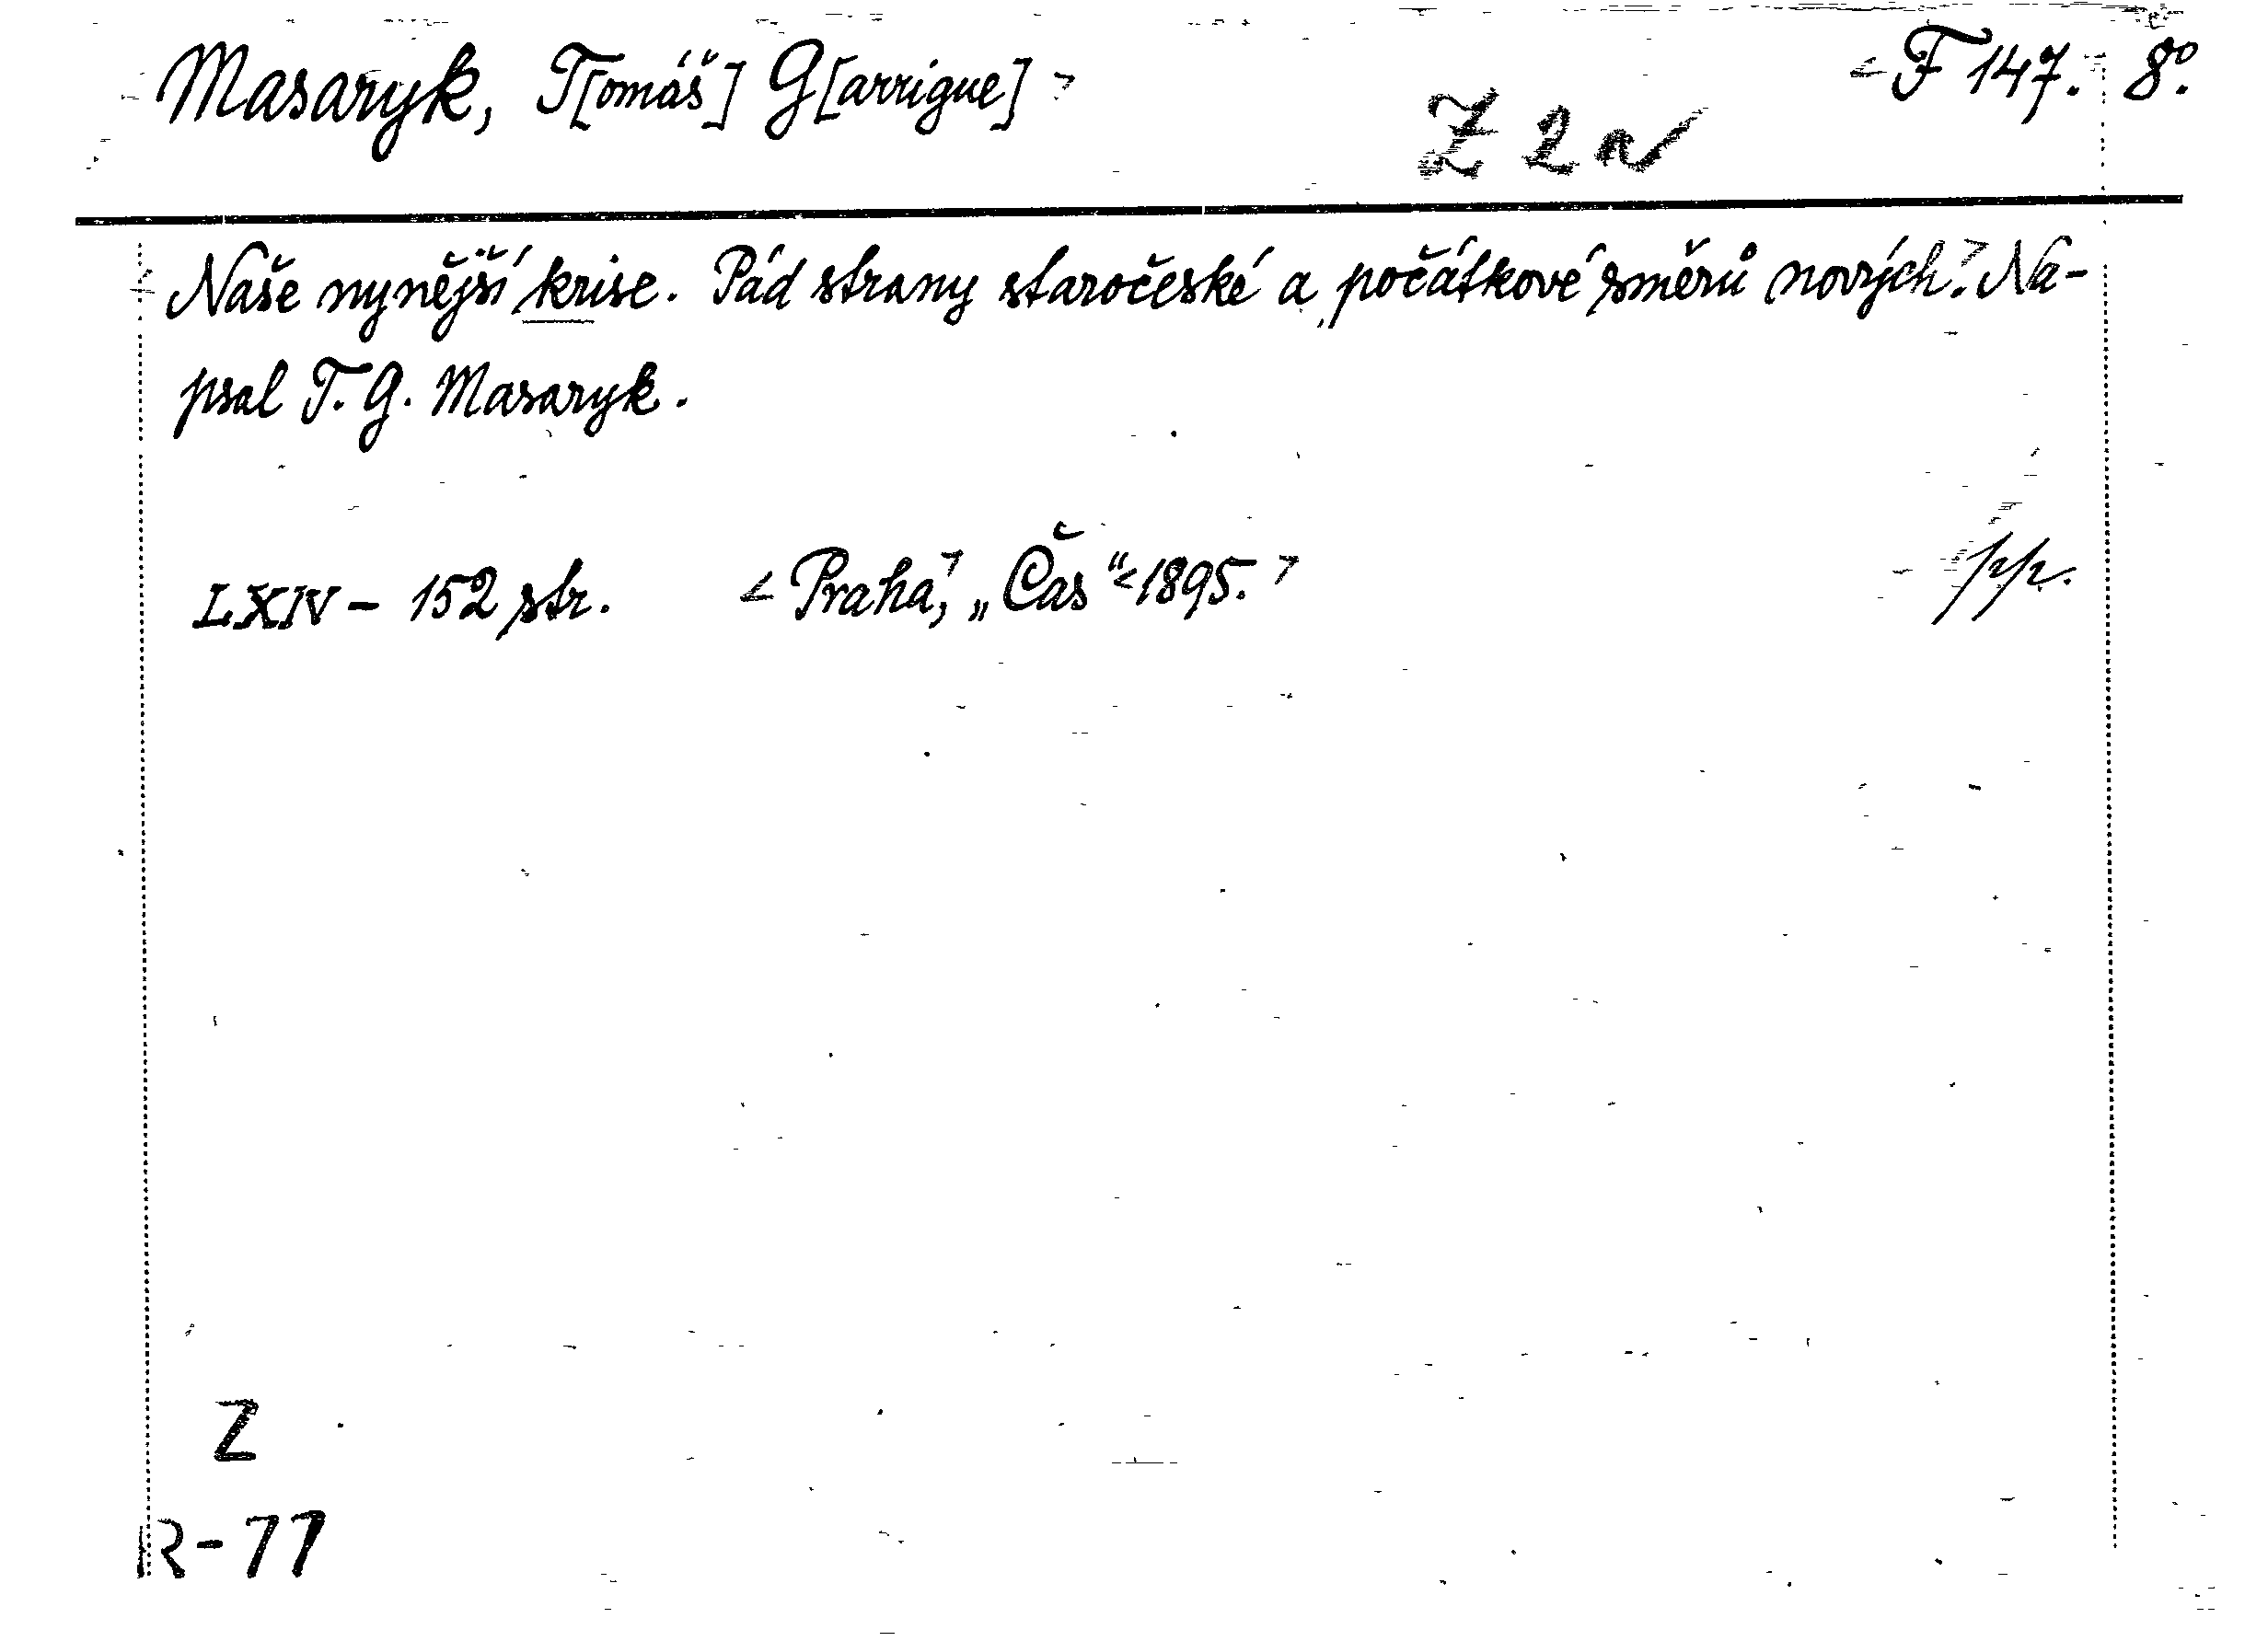 Masaryk, T[omáš] G[arrigue] > < F 147. 8°.
Z 2a
< Naše nynější krise. Pád strany staročeské a počátkové směrů nových.> Na-
psal T. G. Masaryk.
LXIV - 152 str. < Praha,> „Čas“ < 1895. > pp.
Z
R-77